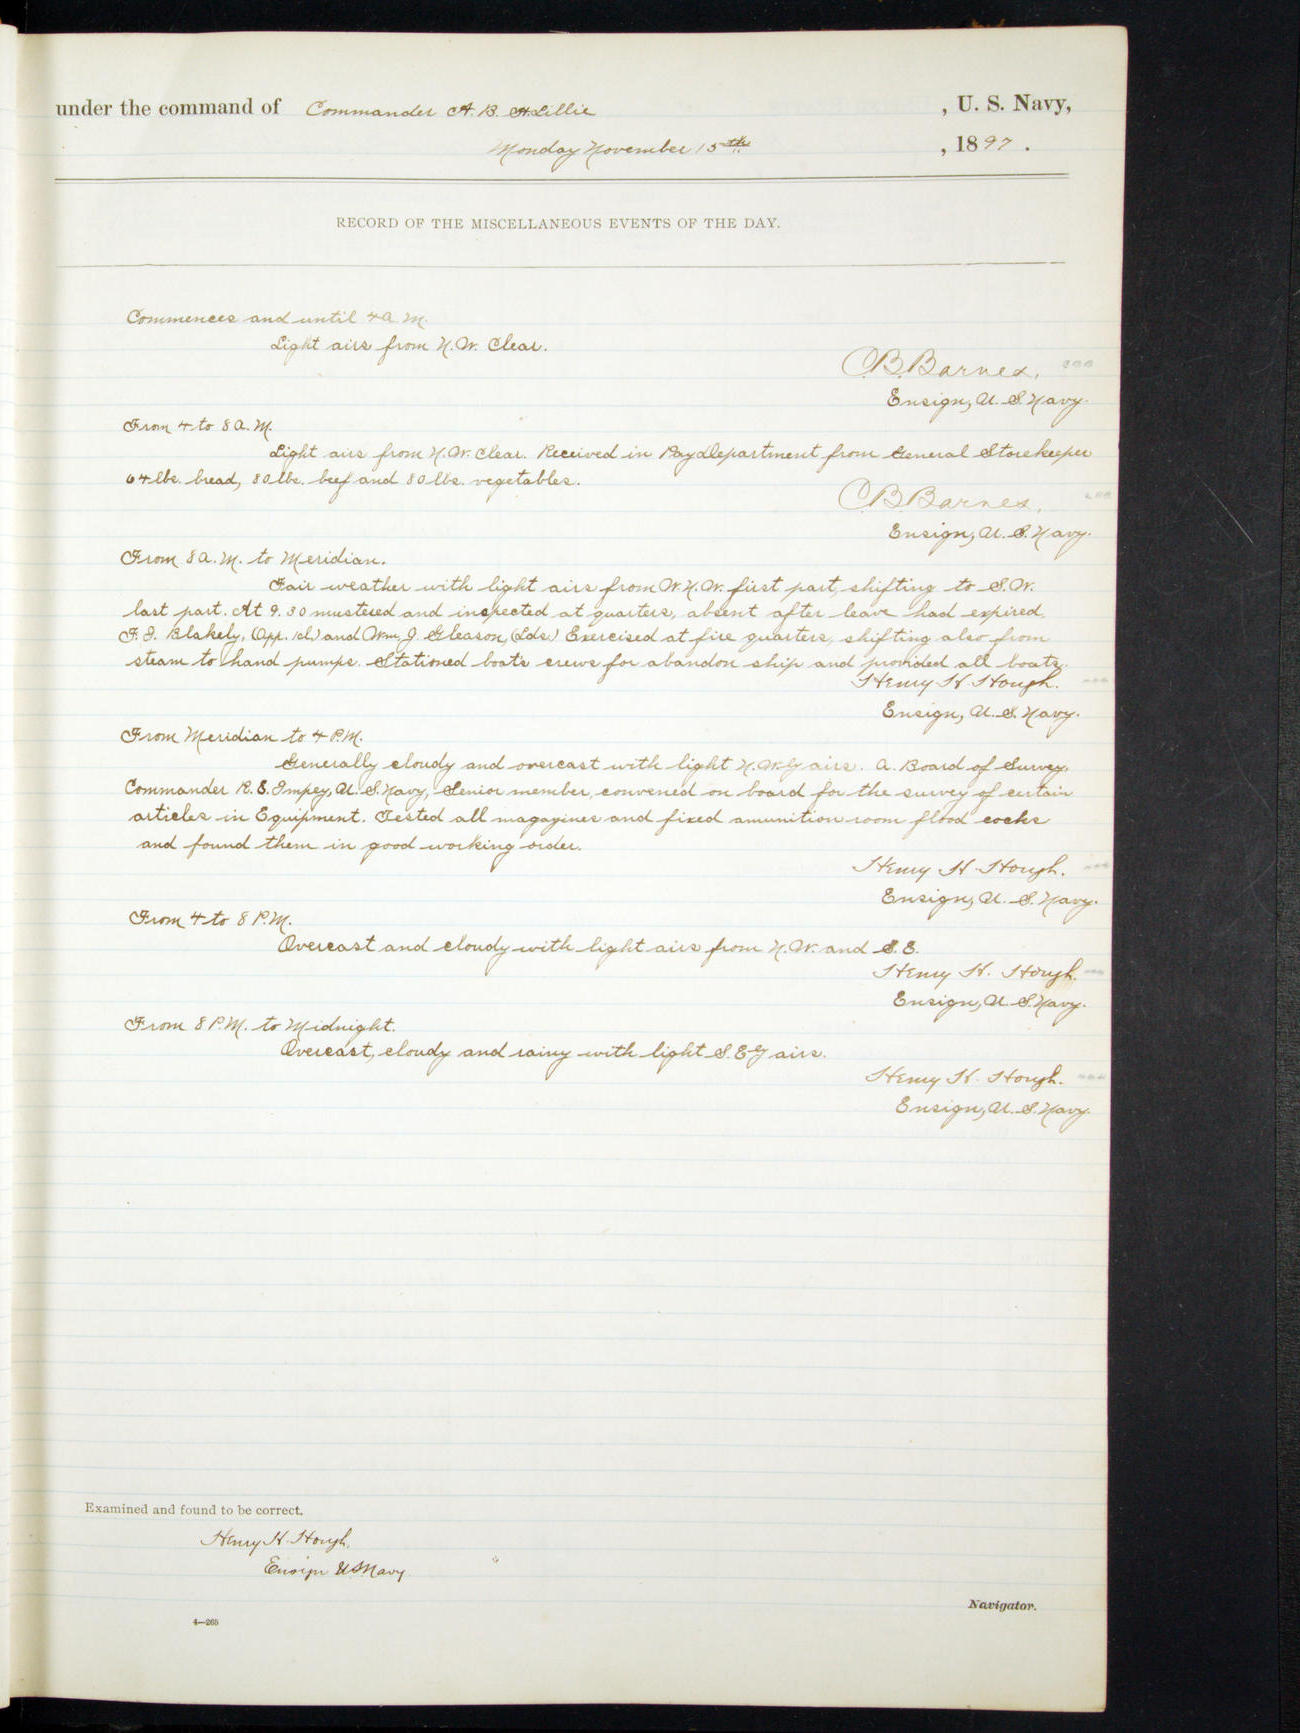 under the command of Commander A. B. H. Lillie , U. S. Navy,
Monday November 15th , 1897 .
RECORD OF THE MISCELLANEOUS EVENTS OF THE DAY.
Commences and until 4 A.M.
Light airs from N.W. Clear.
C.B. Barnes,
Ensign, U. S. Navy.
From 4 to 8 A.M.
Light airs from N.W. Clear. Received in Pay Department from General Storekeeper
64 lbs. bread, 80 lbs. beef and 80 lbs. vegetables.
C.B. Barnes,
Ensign, U. S. Navy.
From 8 A.M. to Meridian.
Fair weather with light airs from W.N.W. first part, shifting to S.W.
last part. At 9.30 mustered and inspected at quarters, absent after leave had expired,
F. J. Blakely, (App. 1cl.) and Wm. J. Gleason, (Lds.) Exercised at fire quarters, shifting also from
steam to hand pumps. Stationed boat's crews for abandon ship and provided all boats.
Henry H. Hough.
Ensign, U. S. Navy.
From Meridian to 4 P.M.
Generally cloudy and overcast with light N.W'ly airs. A. Board of Survey,
Commander R. E. Impey, U. S. Navy, Senior member, convened on board for the survey of certain
articles in Equipment. Tested all magazines and fixed amunition room flood cocks
and found them in good working order.
Henry H. Hough.
Ensign, U. S. Navy.
From 4 to 8 P.M.
Overcast and cloudy with light airs from N.W. and S.E.
Henry H. Hough.
Ensign, U. S. Navy.
From 8 P.M. to Midnight.
Overcast, cloudy and rainy with light S.E'ly airs.
Henry H. Hough.
Ensign, U. S. Navy.
Examined and found to be correct.
Henry H. Hough,
Ensign U.S. Navy
Navigator.
4—265